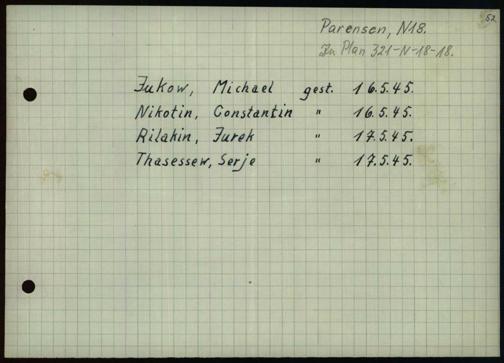 52
Parensen, N18.
Zu Plan 321-N-18-18.
Jukow, Michael gest. 16.5.45.
Nikotin, Constantin " 16.5.45.
Rilakin, Jurek " 17.5.45.
Thasessew, Serje " 17.5.45.